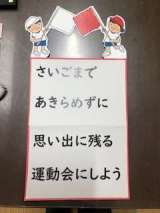 さいごまで
あきらめずに
思い出に残る
運動会にしよう